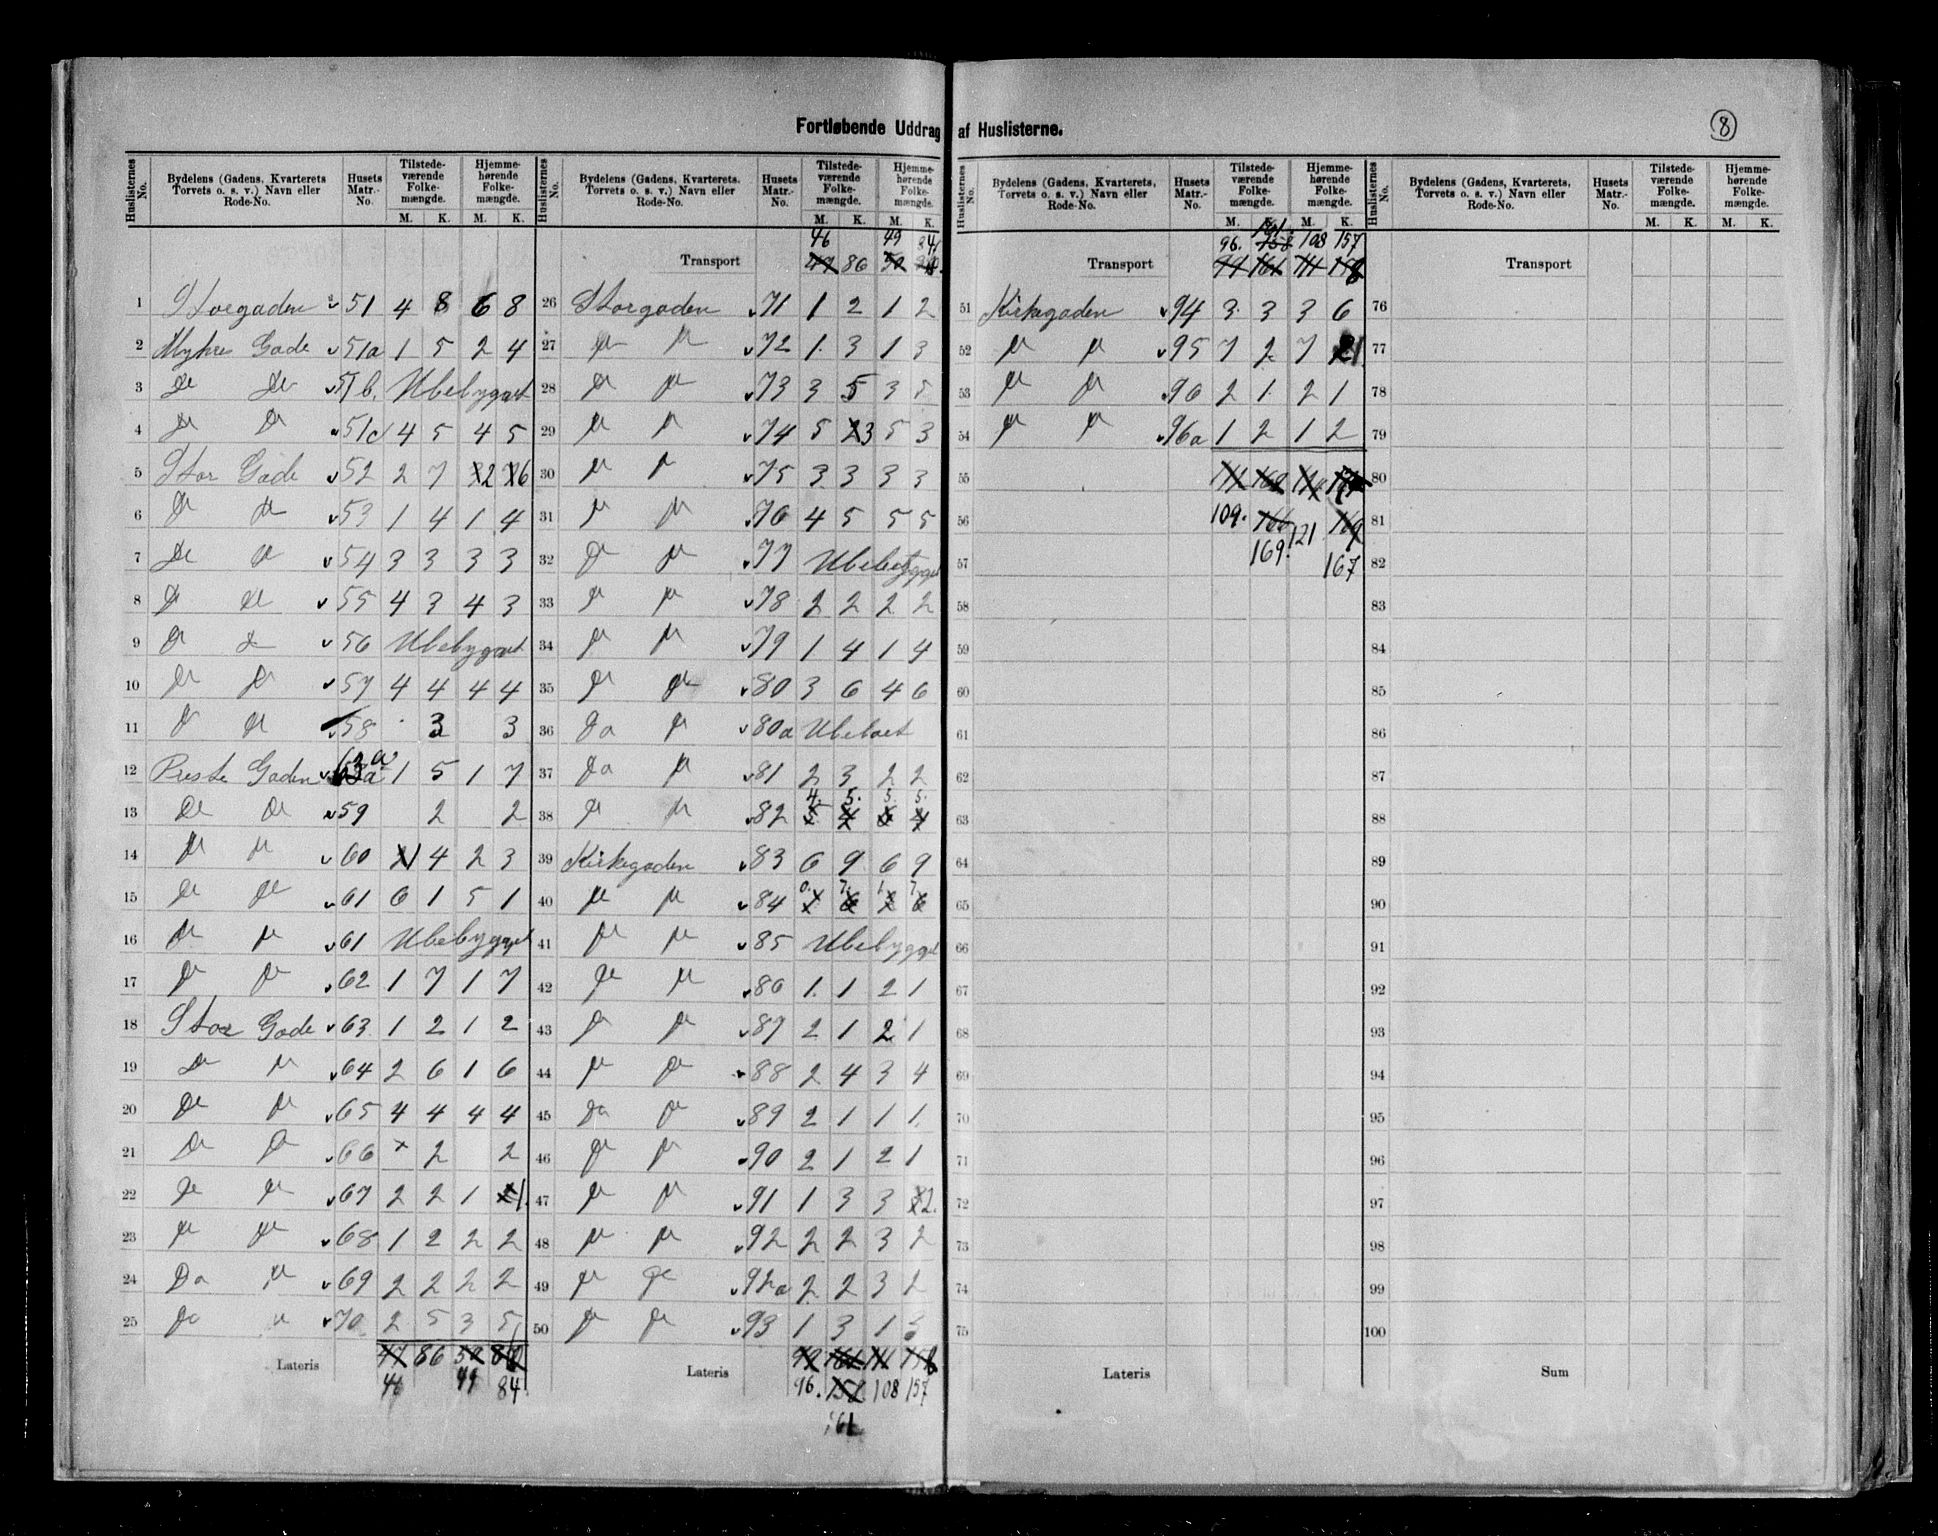 Fortløbende Uddrag af Huslisterne.
8
Huslisternes No. | Bydelens (Gadens, Kvarterets, Torvets o. s. v.) Navn eller Rode-No. | Husets Matr.-No. | Tilstedeværende Folkemængde. M. K. | Hjemmehørende Folkemængde. M. K.
1 Storgaden 51 4 8 6 8
2 Myhre Gade 51a 1 5 2 4
3 Do Do 51b. Ubebygget
4 Do Do 51c 4 5 4 5
5 Stor Gade 52 2 7 2 6
6 Do Do 53 1 4 1 4
7 Do Do 54 3 3 3 3
8 Do Do 55 4 3 4 3
9 Do Do 56 Ubebygget
10 Do Do 57 4 4 4 4
11 Do Do 58 3 3
12 Preste Gaden 63a 1 5 1 7
13 Do Do 59 2 2
14 Do Do 60 1 4 2 3
15 Do Do 61 6 1 5 1
16 Do Do 61 Ubebygget
17 Do Do 62 1 7 1 7
18 Stor Gade 63 1 2 1 2
19 Do Do 64 2 6 1 6
20 Do Do 65 4 4 4 4
21 Do Do 66 2 2
22 Do Do 67 2 2 1 1.
23 Do Do 68 1 2 2 2
24 Do Do 69 2 2 2 2
25 Do Do 70 2 5 3 5
Lateris 47 86 50
46 49 84.
Huslisternes No. | Bydelens (Gadens, Kvarterets, Torvets o. s. v.) Navn eller Rode-No. | Husets Matr.-No. | Tilstedeværende Folkemængde. M. K. | Hjemmehørende Folkemængde. M. K.
46 49 84
Transport 47 86 50
26 Storgaden 71 1 2 1 2
27 Do Do 72 1 3 1 3
28 Do Do 73 3 5 3 5
29 Do Do 74 5 3 5 3
30 Do Do 75 3 3 3 3
31 Do Do 76 4 5 5 5
32 Do Do 77 Ubebygget
33 Do Do 78 2 2 2 2
34 Do Do 79 1 4 1 4
35 Do Do 80 3 6 4 6
36 Do Do 80a Ubeboet
37 Do Do 81 2 3 2 2
4. 5. 5. 5.
38 Do Do 82 5 4 6 4
39 Kirkegaden 83 6 9 6 9
0. 7. 1. 7.
40 Do Do 84 1 6 2 6
41 Do Do 85 Ubebygget
42 Do Do 86 1 1 2 1
43 Do Do 87 2 1 2 1
44 Do Do 88 2 4 3 4
45 Do Do 89 2 1 1 1
46 Do Do 90 2 1 2 1
47 Do Do 91 1 3 3 2.
48 Do Do 92 2 2 3 2
49 Do Do 92a 2 2 3 2
50 Do Do 93 1 3 1 3
Lateris 99 161 111 158
96. 158 108 157
161
Huslisternes No. | Bydelens (Gadens, Kvarterets, Torvets o. s. v.) Navn eller Rode-No. | Husets Matr.-No. | Tilstedeværende Folkemængde. M. K. | Hjemmehørende Folkemængde. M. K.
161.
96. 158 108 157
Transport 99 161 111 158
51 Kirkegaden 94 3 3 3 6
52 Do Do 95 7 2 7 1
53 Do Do 96 2 1 2 1
54 Do Do 96a 1 2 1 2
55 111
56 109. 166 121 169
57 169. 167
58
59
60
61
62
63
64
65
66
67
68
69
70
71
72
73
74
75
Lateris
Huslisternes No. | Bydelens (Gadens, Kvarterets, Torvets o. s. v.) Navn eller Rode-No. | Husets Matr.-No. | Tilstedeværende Folkemængde. M. K. | Hjemmehørende Folkemængde. M. K.
Transport
76
77
78
79
80
81
82
83
84
85
86
87
88
89
90
91
92
93
94
95
96
97
98
99
100
Sum